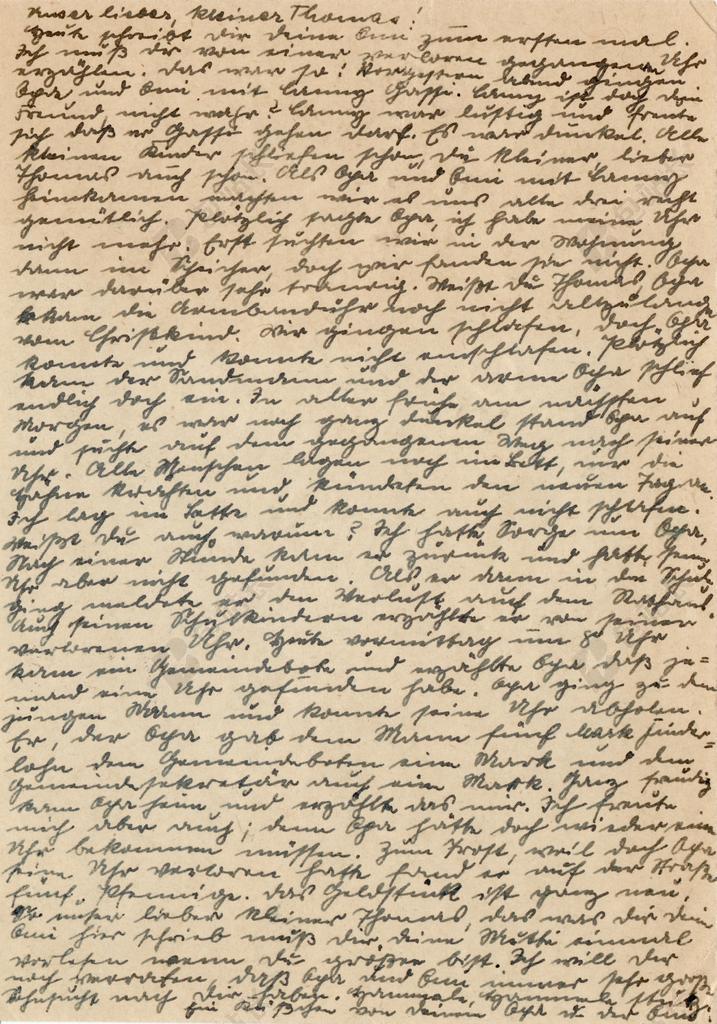 Unser lieber, kleiner Thomas!
Heute schreibt dir deine Omi zum ersten mal.
Ich muß dir von einer verloren gegangenen Uhr
erzählen. Das war so: Vorgestern abend gingen
Opa und Omi mit Lanny Gassi. Lanny ist doch dein
Freund, nicht wahr? Lanny war lustig und freute
sich daß er Gassi gehen darf. Es war dunkel. Alle
kleinen Kinder schliefen schon, du kleiner, lieber
Thomas auch schon. Als Opa und Omi mit Lanny
heimkamen machten wir es uns alle drei recht
gemütlich. Plötzlich sagte Opa, ich habe meine Uhr
nicht mehr. Erst suchten wir in der Wohnung
dann im, doch wir fanden sie nicht. Opa
war darüber sehr traurig. Weißt du Thomas Opa
bekam die Armbanduhr noch nicht allzulange
vom Christkind. Wir gingen schlafen, doch Opa
konnte und konnte nicht einschlafen. Plötzlich
kam der Sandmann und der arme Opa schlief
endlich doch ein. In aller frühe am nächsten
Morgen, es war noch ganz dunkel stand Opa auf
und suchte auf dem gegangenen Weg nach seiner
Uhr. Alle Menschen lagen noch im Bett, nur die
Hähne krähten und kündeten den neuen Tag an.
Ich lag im Bette und konnte auch nicht schlafen.
Weißt Du auch warum? Ich hatte Sorge um Opa,
Nach einer Stunde kam er zurück und hatte seine
Uhr aber nicht gefunden. Als er dann in die Schule
ging meldete er den Verlust auf dem Rathaus.
Auch seinen Schulkindern erzählte er von seiner
verlorenen Uhr. Heute vormittag um 8 Uhr
kam ein Gemeindebote und erzählte Opa daß je=
mand eine Uhr gefunden habe. Opa ging zu dem
jungen Mann und konnte seine Uhr abholen.
Er, der Opa gab dem Mann fünf Mark Finder=
lohn dem Gemeindeboten eine Mark und dem
Gemeindesekretär auch eine Mark. Ganz freudig
kam Opa heim und erzählte das mir. Ich freute
mich aber auch; denn Opa hätte doch wieder eine
Uhr bekommen müssen. Zum Trost, weil doch Opa
seine Uhr verloren hatte fand er auf der Straße
fünf Pfennige. Das Geldstück ist ganz neu.
Du unser lieber kleiner Thomas, das was dir dein
Omi hier schrieb muß dir, deine Mutti einmal
vorlesen wenn du größer bist. Ich will dir
noch verraten, daß Opa und Omi immer sehr große
Sehnsucht nach Dir haben.
Ein Küßchen von deinem Opa u. der Omi.